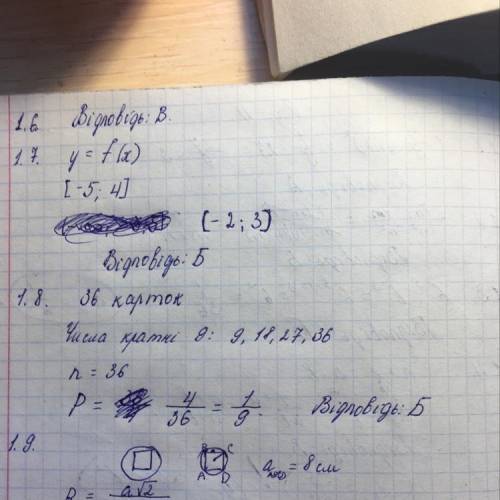 1.6. Відповідь: В.
1.7. y = f(x)
[-5; 4]
[-2; 3]
Відповідь: Б
1.8. 36 карток
Числа кратні 9: 9, 18, 27, 36
n = 36
P = 4/36 = 1/9. Відповідь: Б
1.9. B C A D a = 8 см
R = a√2